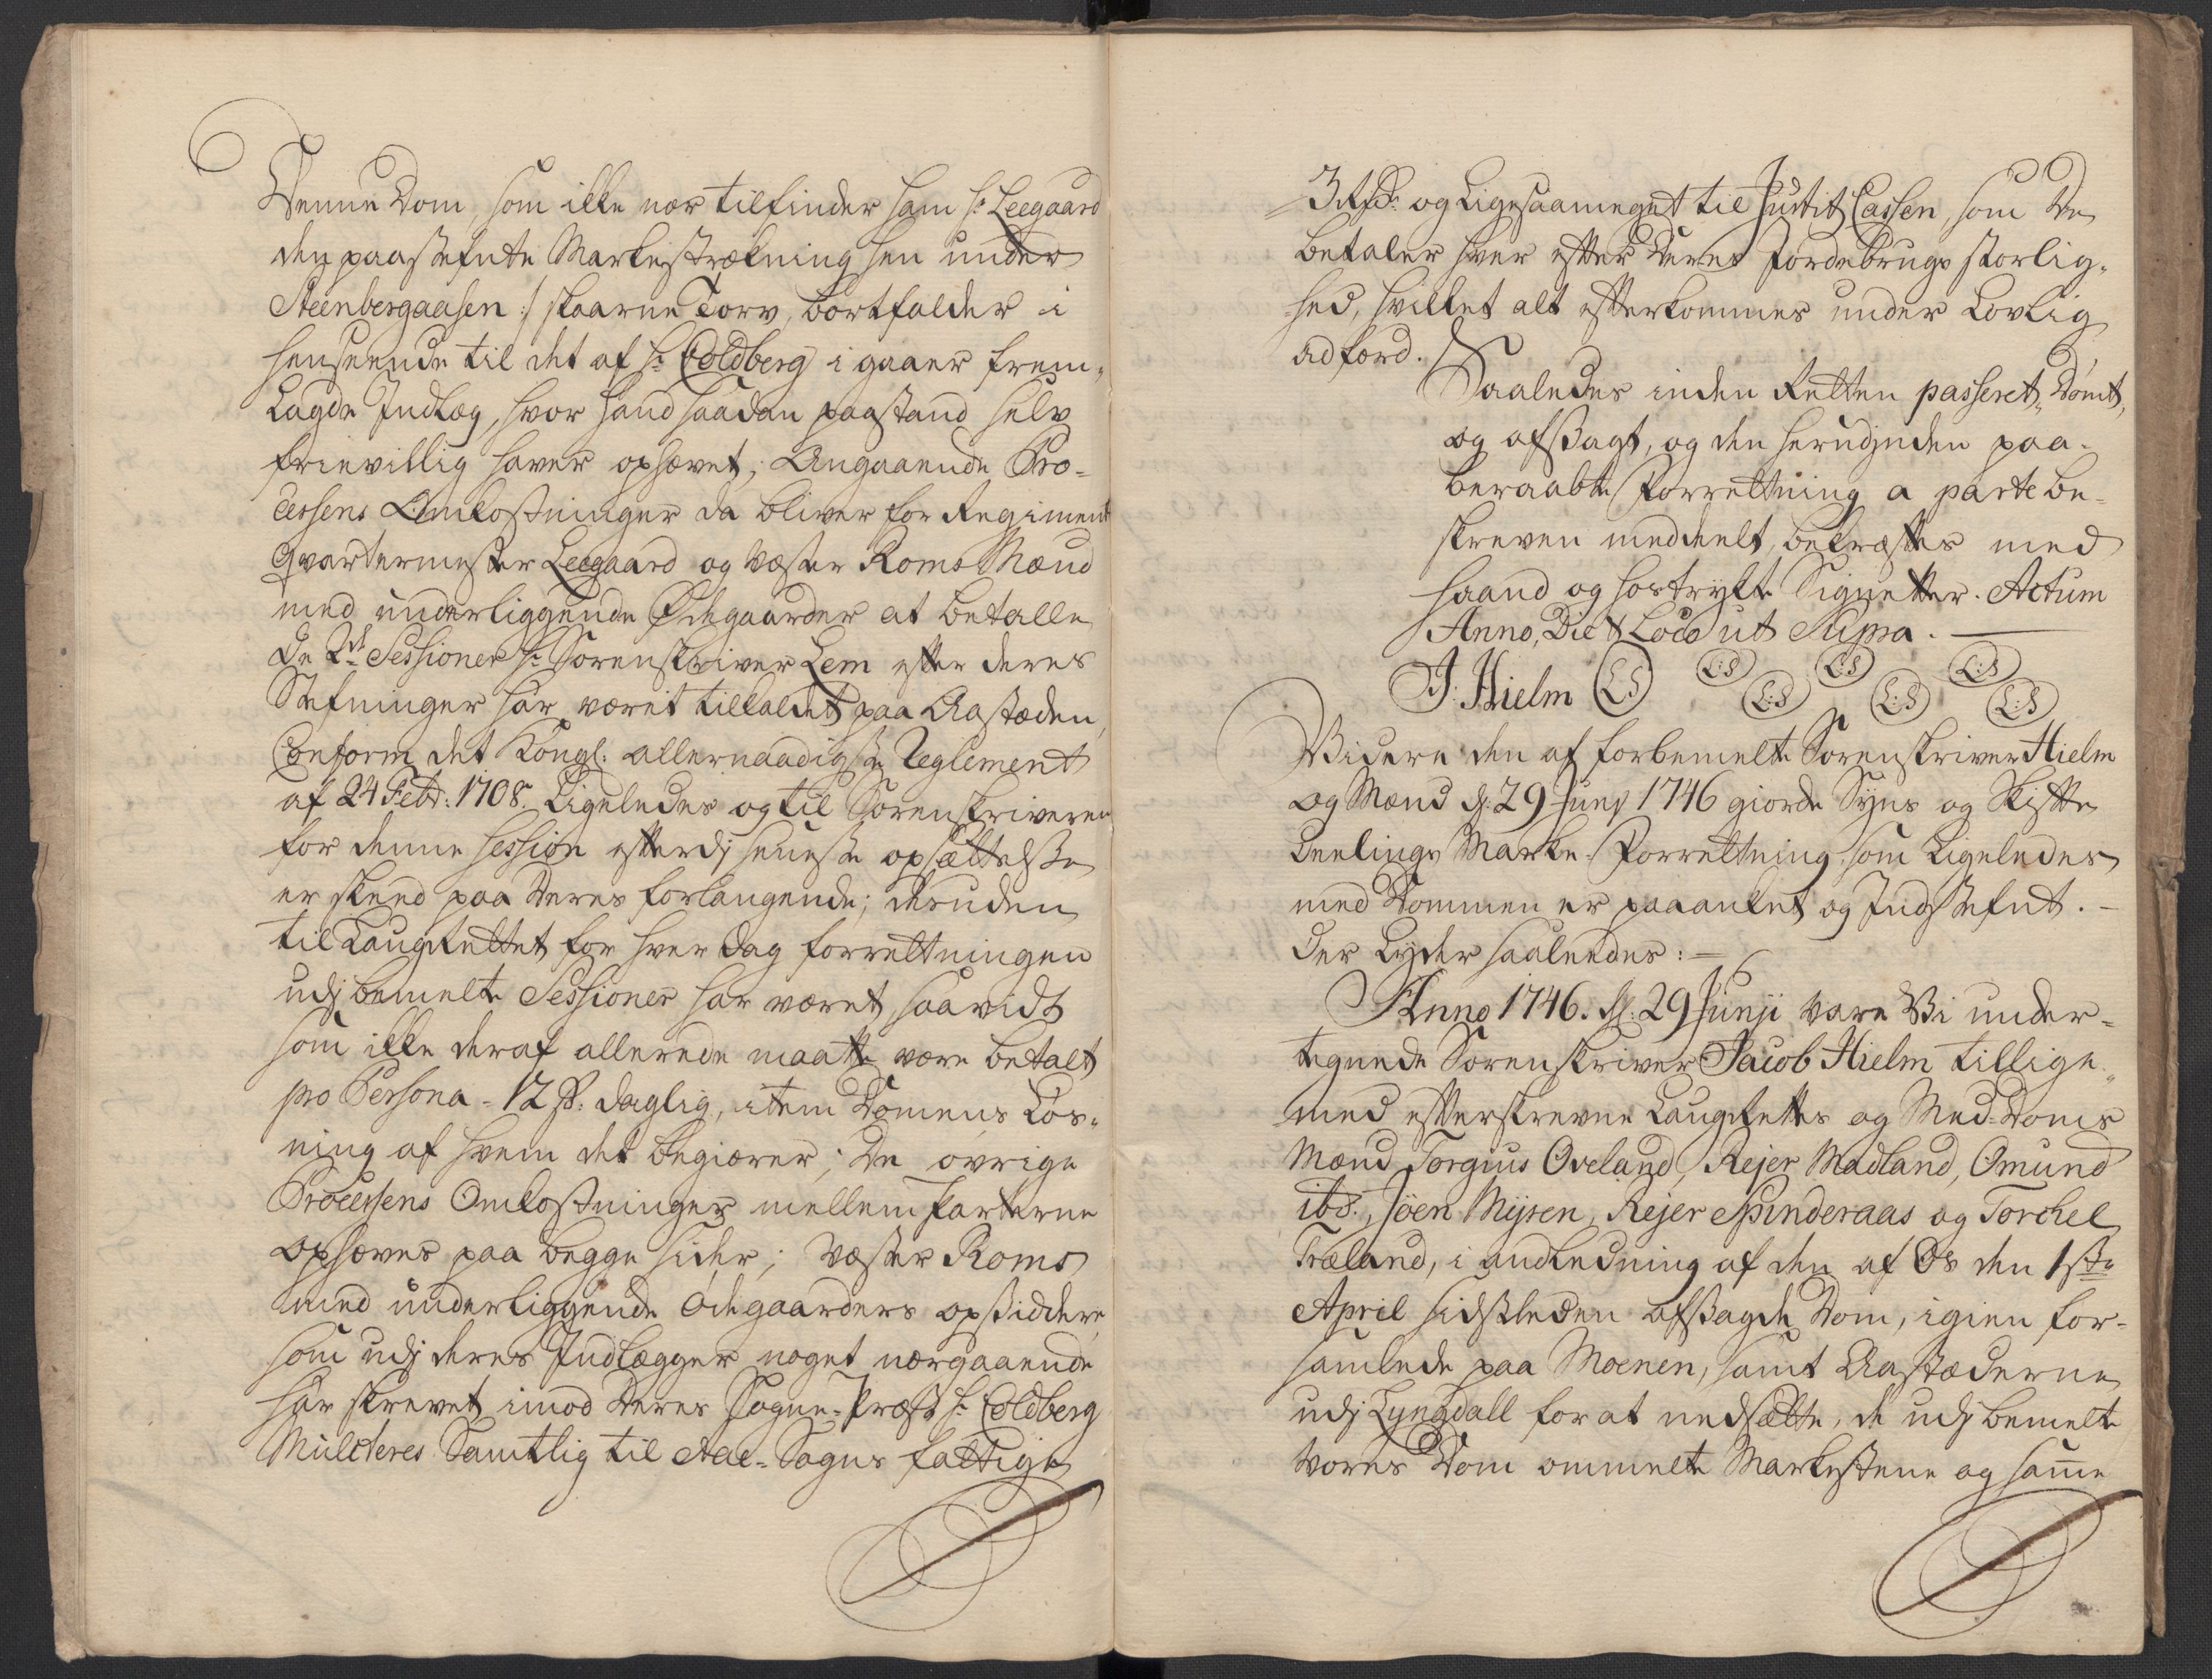 Denne Dom, som ikke nær tilfinder ham Hr: Leegaard
den paastefnte Markestrækning hen under
Steenbergaasen :/ skaarne Torv, bortfalder i
henseende til det af Hr: Coldberg i gaaer frem-
lagde Indlæg, hvor hand saadan paastand selv
frievillig haver ophævet; Angaaende Pro-
cessens Omkostninger da bliver for Regiment
Qvartermester Leegaard og Vester Roms Mænd
med underliggende Ødegaarder at betalle
De 2de Sessioner Hr: Sorenskriver Lem efter deres
Stefninger har været tilkaldet paa Aastæden,
Conform det Kongl: allernaadigste Reglement
af 24 Febr: 1708. Ligeledes og til Sorenskriveren
for denne Session efterdj seneste opsættelsse
er skeed paa deres forlangende; desuden
til Laugrettet for hver dag forrettningen
udj bemelte Sessioner har været, saavidt
som ikke deraf allerede maatte være betalt
pro Persona - 12 s: daglig, item Domens Løs-
ning af hvem det begiærer; De øvrige
Processens Omkostninger mellem Parterne
ophæves paa begge sider; Vester Roms
med underliggende Ødegaarders opsiddere,
som udj deres Indlægger noget nærgaaende
har skrevet imod deres Sogne-Præst Hr: Coldberg
Mulcteres Samtlig til Aae-Sogns fattige
3 Rd: og Ligesaameget til Justitz Cassen, som De
betaler hver efter deres Jordebrugs storlig-
hed, hvilket alt efterkommes under Lovlig
adfærd.
Saaledes inden Retten passeret, Dømt,
og afsagt, og den herudjnden paa-
beraabte Forrettning a parte be-
skreven meddeelt, bekræftes med
Haand og hostrykte Signetter. Actum
Anno, Die & Loco ut Supra.
J: Hielm LS L:S L:S L:S L:S L:S L:S
Videre den af forbemelte Sorenskriver Hielm
og Mænd d: 29 Junij 1746 giorde Syns og Skifte
Deelings Marke-Forrettning, som Ligeledes
med Dommen er paaanket og Indstefnt.
der Lyder saaledes:
Anno 1746. d: 29 Junji vare Vi under-
tegnede Sorenskriver Jacob Hielm tillige
med efterskrevne Laugrettes og Med-Doms
Mænd Torgius Oveland, Rejer Madland, Omund
ibd:, Joen Mijren, Rejer Spinderaas og Torchel
Træland, i andledning af den af Os den 1ste
April sidstleden afsagde Dom, igien for-
samlede paa Moenen, samt Aastæderne
udj Lyngdall for at nedsætte, de udj bemelte
Vores Dom ommelte Markestene og samme